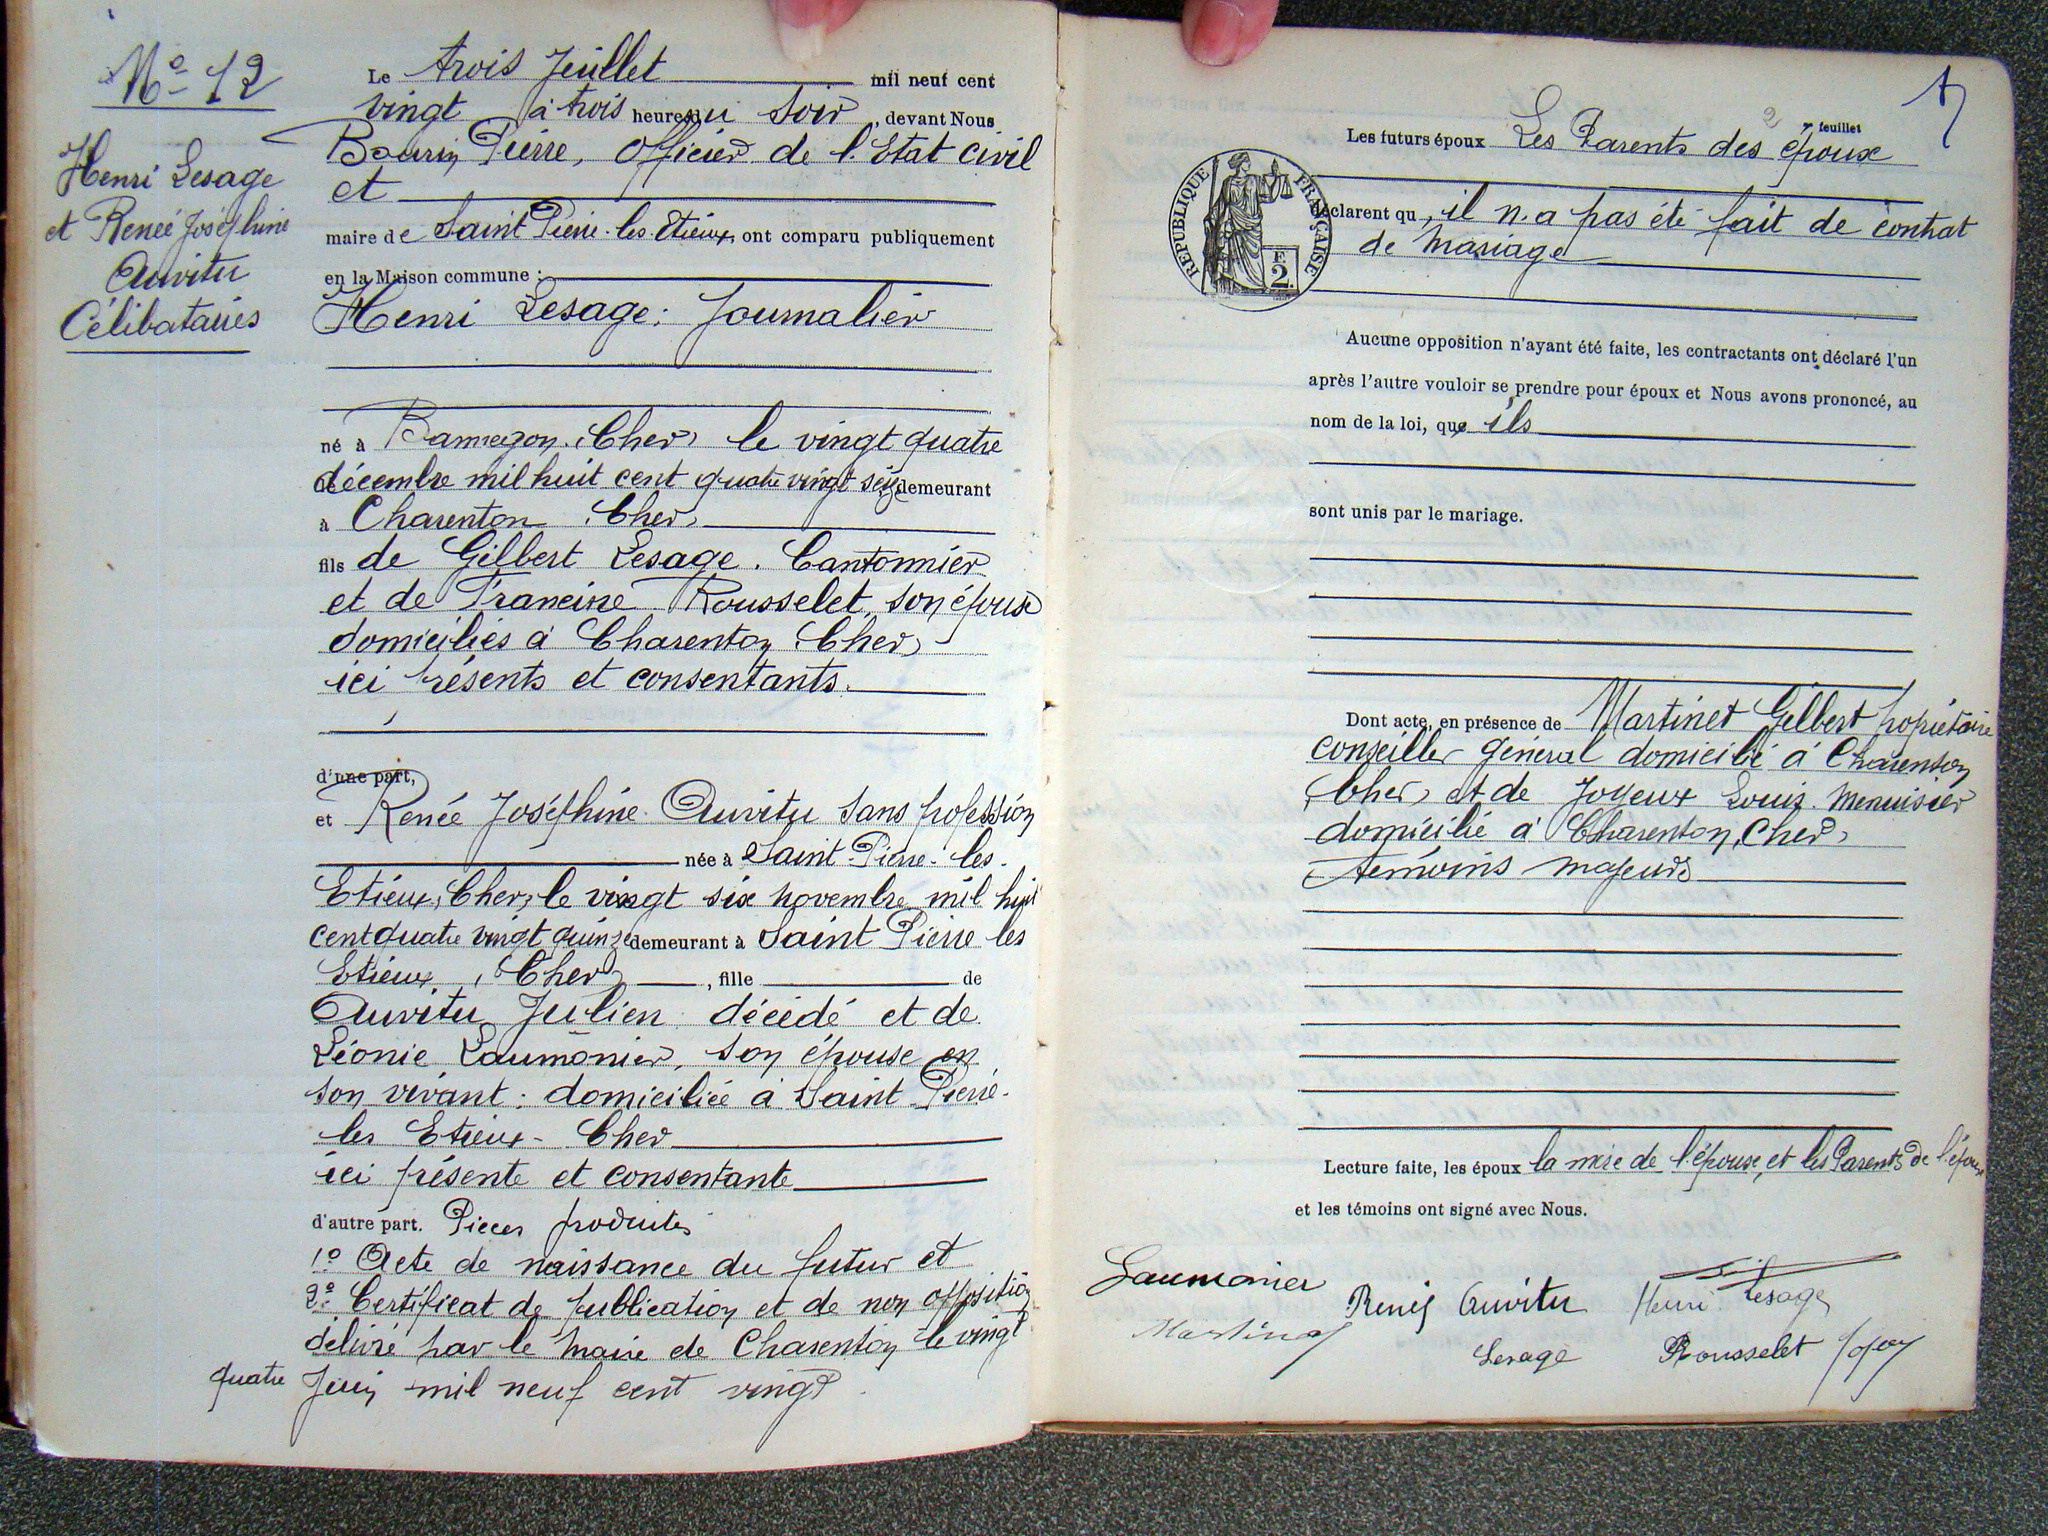 N° 12
Henri Lesage
et Renée Joséphine
Auvitu
Célibataires
Le trois Juillet mil neuf cent
vingt à trois heures du Soir, devant Nous
Bourin Pierre, officier de l'Etat civil
et
maire de Saint Pierre-les-Etieux, ont comparu publiquement
en la Maison commune :
Henri Lesage, Journalier
né à Bannegon, Cher, le vingt quatre
décembre mil huit cent quatre vingt seize demeurant
à Charenton (Cher)
fils de Gilbert Lesage, Cantonnier
et de Francine Rousselet, son épouse
domiciliés à Charenton (Cher)
ici présents et consentants.
d'une part,
et Renée Joséphine Auvitu sans profession
née à Saint-Pierre-les-
Etieux, Cher, le vingt six novembre mil huit
cent quatre vingt quinze demeurant à Saint Pierre les
Etieux, (Cher), fille de
Auvitu Julien décédé et de
Léonie Laumonier, son épouse en
son vivant, domiciliée à Saint-Pierre-
les Etieux - Cher
ici présente et consentante
d'autre part. Pièces produites
1° Acte de naissance du futur et
2° Certificat de publication et de non opposition
délivré par le Maire de Charenton le vingt
quatre Juin mil neuf cent vingt
2e feuillet
Les futurs époux Les Parents des époux
RÉPUBLIQUE FRANÇAISE
F.
2.
déclarent qu'il n'a pas été fait de contrat
de mariage
Aucune opposition n'ayant été faite, les contractants ont déclaré l'un
après l'autre vouloir se prendre pour époux et Nous avons prononcé, au
nom de la loi, que ils
sont unis par le mariage.
Dont acte, en présence de Martinet Gilbert propriétaire
conseiller général domicilié à Charenton
(Cher) et de Joyeux Louis Menuisier
domicilié à Charenton, Cher,
témoins majeurs
Lecture faite, les époux la mère de l'épouse, et les Parents de l'époux
et les témoins ont signé avec Nous.
Laumonier
Renée Auvitu
Henri Lesage
Martinet
Lesage
Rousselet